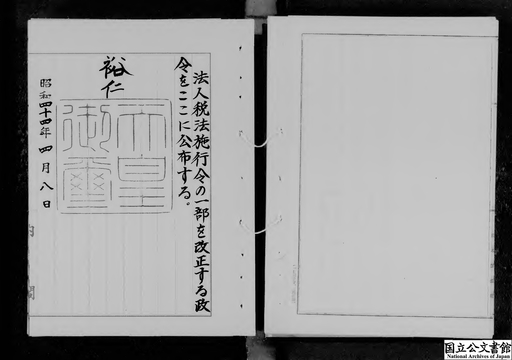 法人税法施行令の一部を改正する政
令をここに公布する。
裕仁
天皇
御璽
昭和四十四年四月八日
国立公文書館
National Archives of Japan